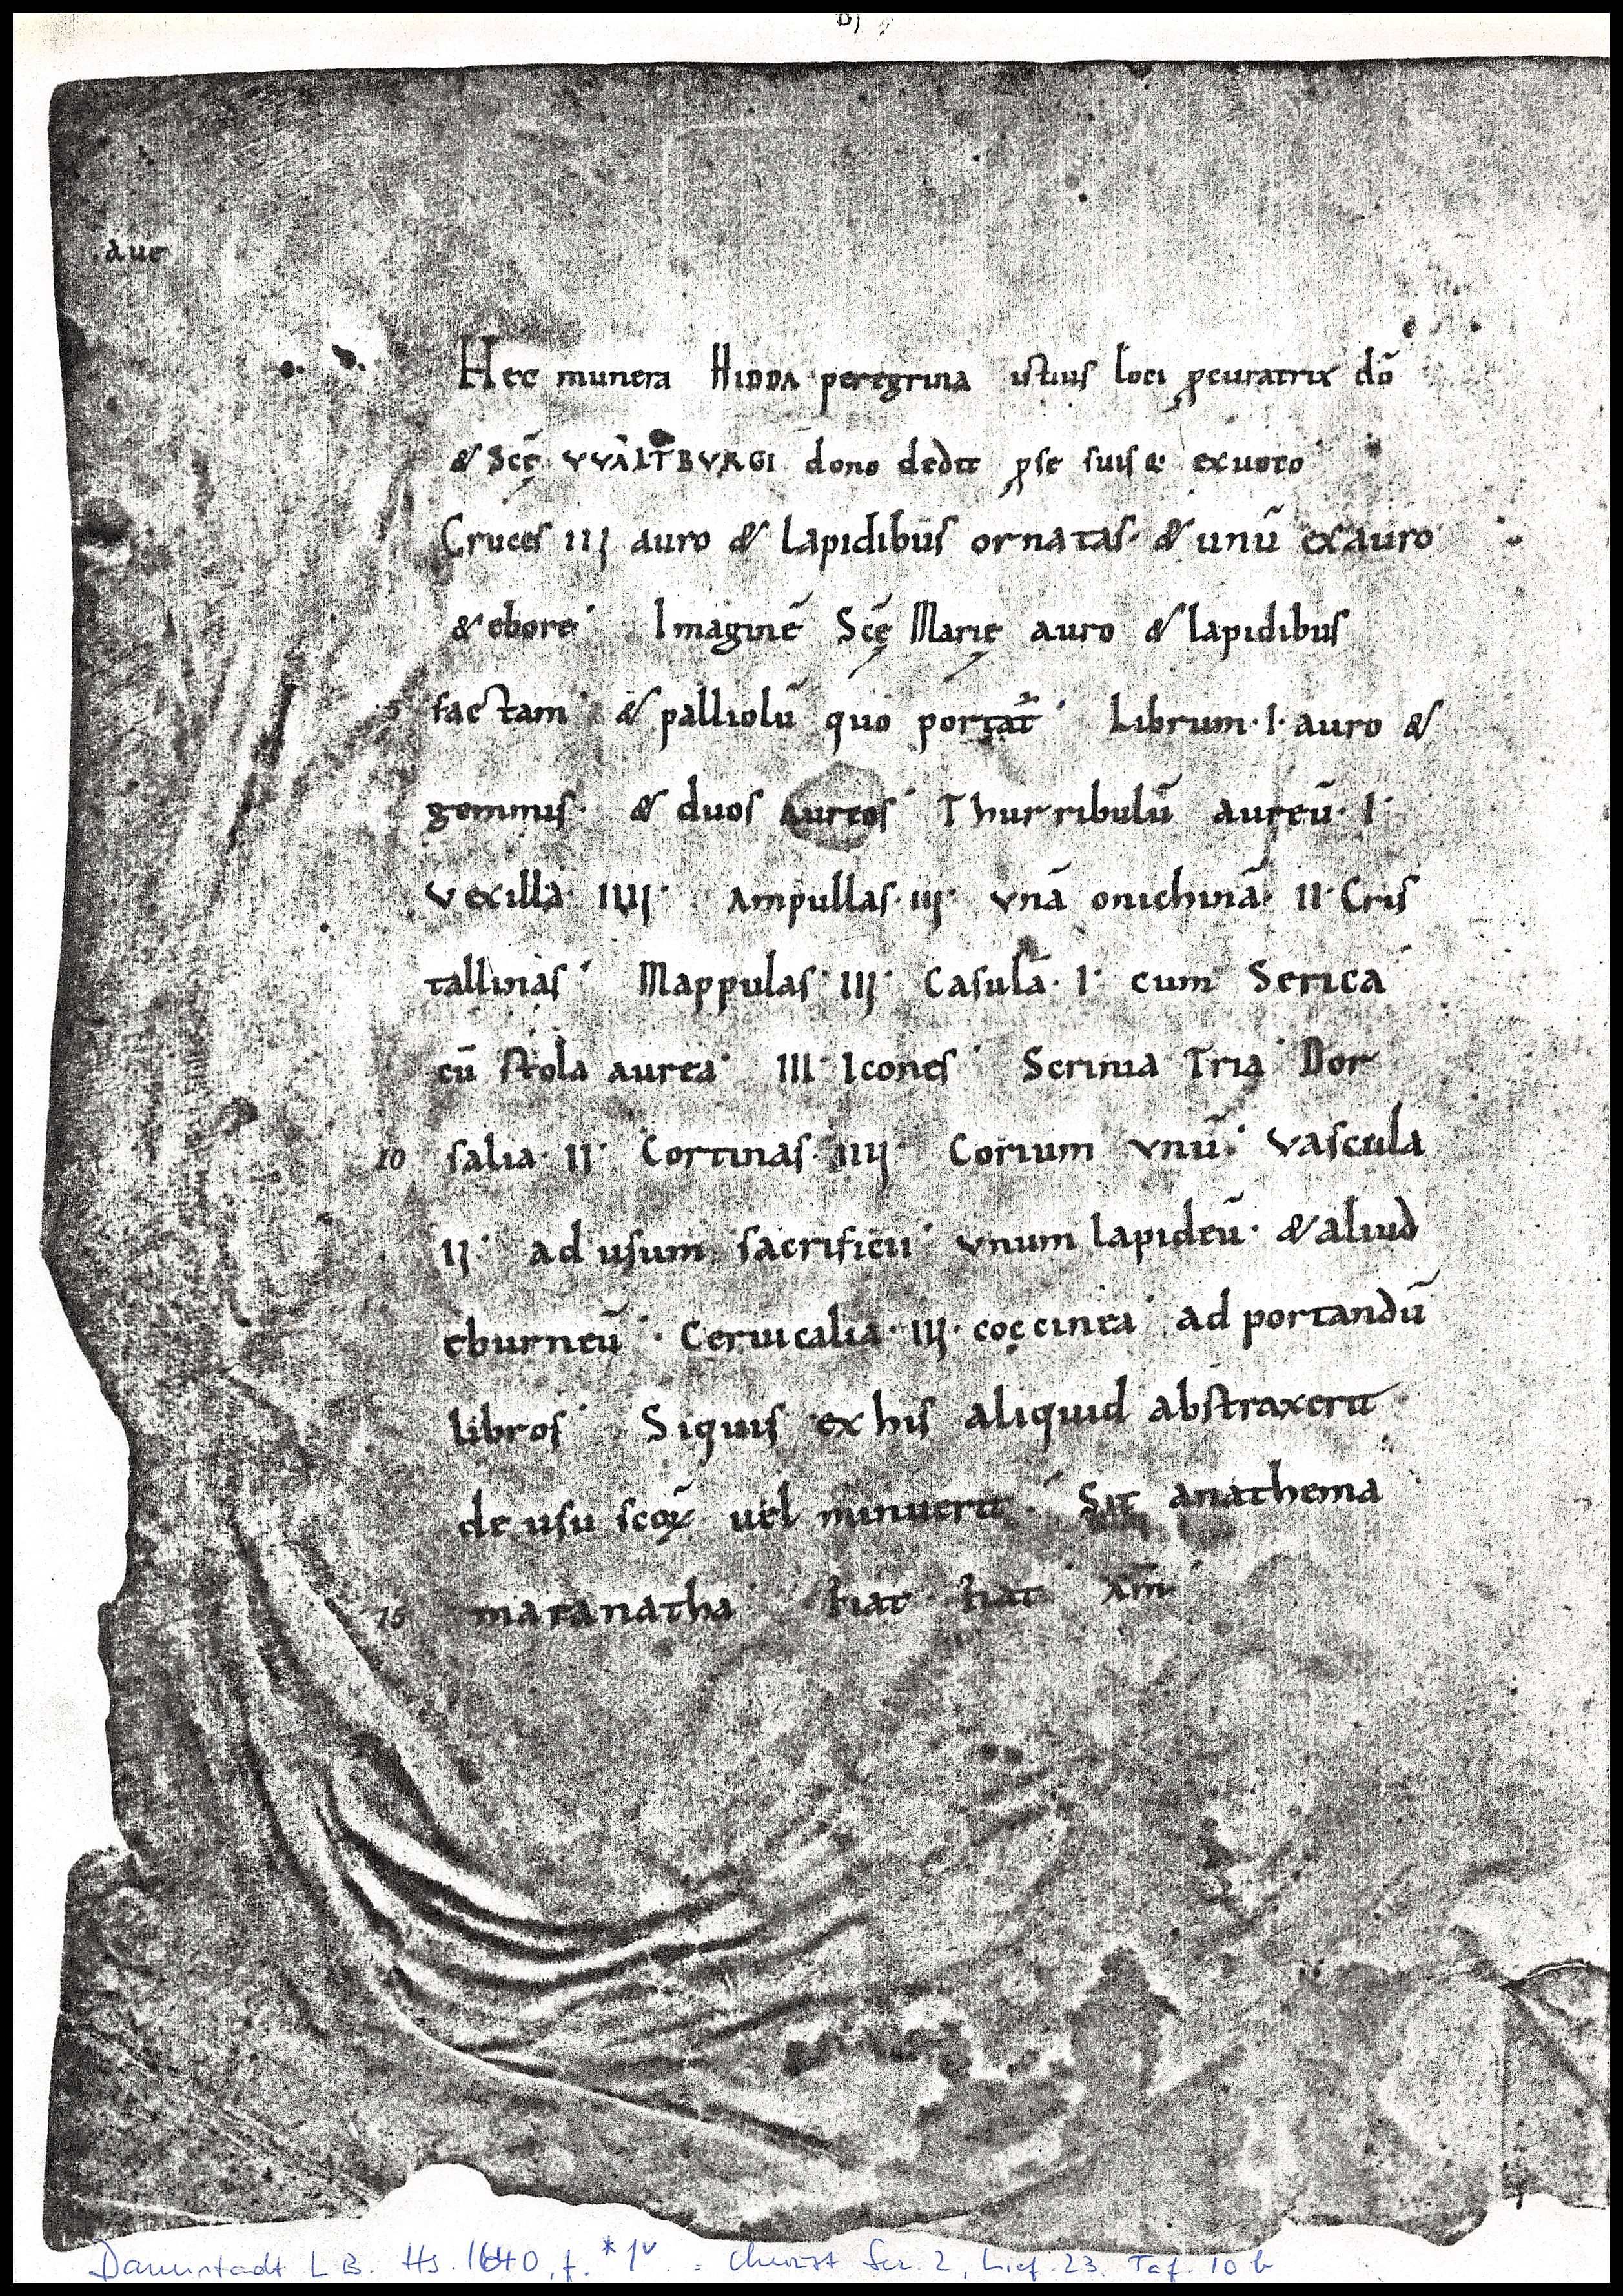 b)
.aue
Hec munera HIDDA peregrina istius loci ꝓcuratrix dō
& Scę̄ VVALTBVRGI dono dedit ꝓ se suisq; ex uoto
Cruces III auro & lapidibus ornatas· & unū ex auro
& ebore· Imaginē Scę̄ Marię auro & lapidibus
5 factam· & palliolū quo portat̄· Librum·I·auro &
gemmis· & duos aureos· Thurribulū aureū·I·
Vexilla·IIII· Ampullas·III· vnā onichinā· II·Cris
tallinas· Mappulas·III· Casulā·I· cum Serica
cū stola aurea· III·Icones· Scrinia Tria· Dor
10 salia·II· Cortinas·IIII· Corium vnū· Vascula
II· ad usum sacrificii· vnum lapideū· & aliud
eburneū· Ceruicalia·III·coccinea· ad portandū
libros· Siquis ex his aliquid abstraxerit
de usu scōꝝ uel minuerit· Sit anathema
15 maranatha· fiat· fiat· Am̄
Darmstadt LB. Hs. 1640, f. *1ᵛ = Christ Scr. 2, Lief. 23. Taf. 10 b